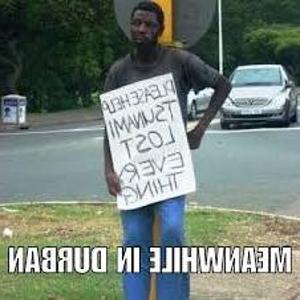 PLEASE HELP
TSUNAMI
LOST
EVERY
THING
MEANWHILE IN DURBAN